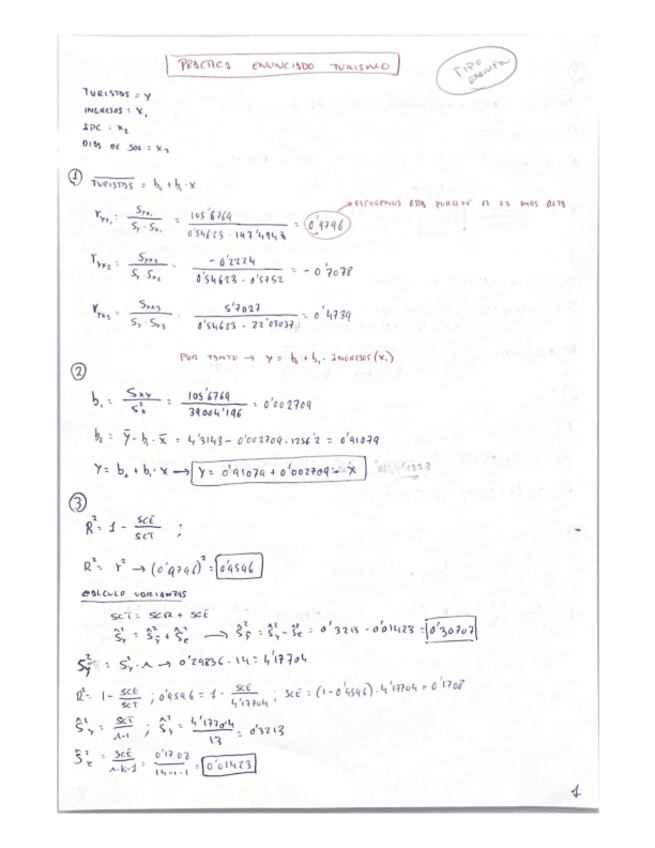 PRACTICA ENUNCIADO TURISMO
TIPO EXAMEN
TURISTAS = Y
INGRESOS = X₁
IPC = X₂
DIAS DE SOL = X₃
① TURISTAS = b₀ + b₁ · X
r_yx₁ = S_yx₁ / (S_y · S_x₁) = 105'6769 / (0'54623 · 197'4948) = 0'9796 → ESCOGEMOS ESTA PORQUE ES LA MAS ALTA
r_yx₂ = S_yx₂ / (S_y · S_x₂) = -0'2224 / (0'54623 · 0'5752) = -0'7078
r_yx₃ = S_yx₃ / (S_y · S_x₃) = 5'7027 / (0'54623 · 22'03037) = 0'4739
POR TANTO → Y = b₀ + b₁ · INGRESOS (X₁)
②
b₁ = S_xy / S²_x = 105'6769 / 39004'196 = 0'002709
b₀ = ȳ - b₁ · x̄ = 4'3143 - 0'002709 · 1256'2 = 0'91079
Y = b₀ + b₁ · X → Y = 0'91079 + 0'002709 · X
③
R² = 1 - SCE / SCT ;
R² = r² → (0'9796)² = 0'9596
CALCULO VARIANZAS
SCT = SCR + SCE
Ŝ²_y = Ŝ²_ŷ + Ŝ²_e → Ŝ²_ŷ = Ŝ²_y - Ŝ²_e = 0'3213 - 0'01423 = 0'30707
S²_y = S²_y · n → 0'29836 · 14 = 4'17704
R² = 1 - SCE / SCT ; 0'9596 = 1 - SCE / 4'17704 ; SCE = (1 - 0'9596) · 4'17704 = 0'1708
Ŝ²_y = SCT / n-1 ; Ŝ²_y = 4'17704 / 13 = 0'3213
Ŝ²_e = SCE / n-k-1 = 0'1708 / 14-1-1 = 0'01423
1